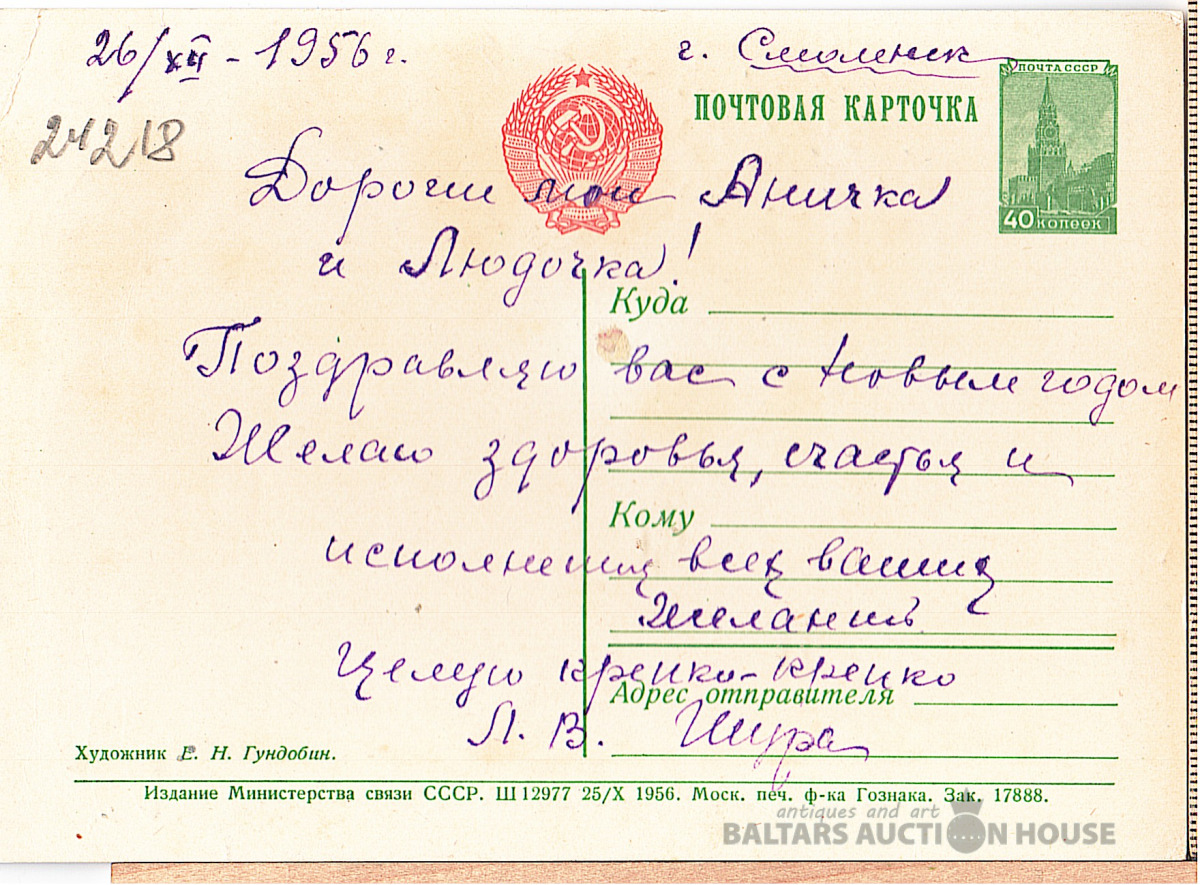 26/XII - 1956 г. г. Смоленск
ПОЧТА СССР
ПОЧТОВАЯ КАРТОЧКА
40 КОПЕЕК
24218
Дороги мои Аничка
и Людочка!
Куда
Поздравляю вас с новым годом
Желаю здоровья, счастья и
Кому
исполнения всех ваших
желаний
Целую крепко-крепко
Адрес отправителя
Л. В. Шура
Художник Е. Н. Гундобин.
Издание Министерства связи СССР. Ш12977 25/X 1956. Моск. печ. ф-ка Гознака. Зак. 17888.
antiques and art
BALTARS AUCTION HOUSE